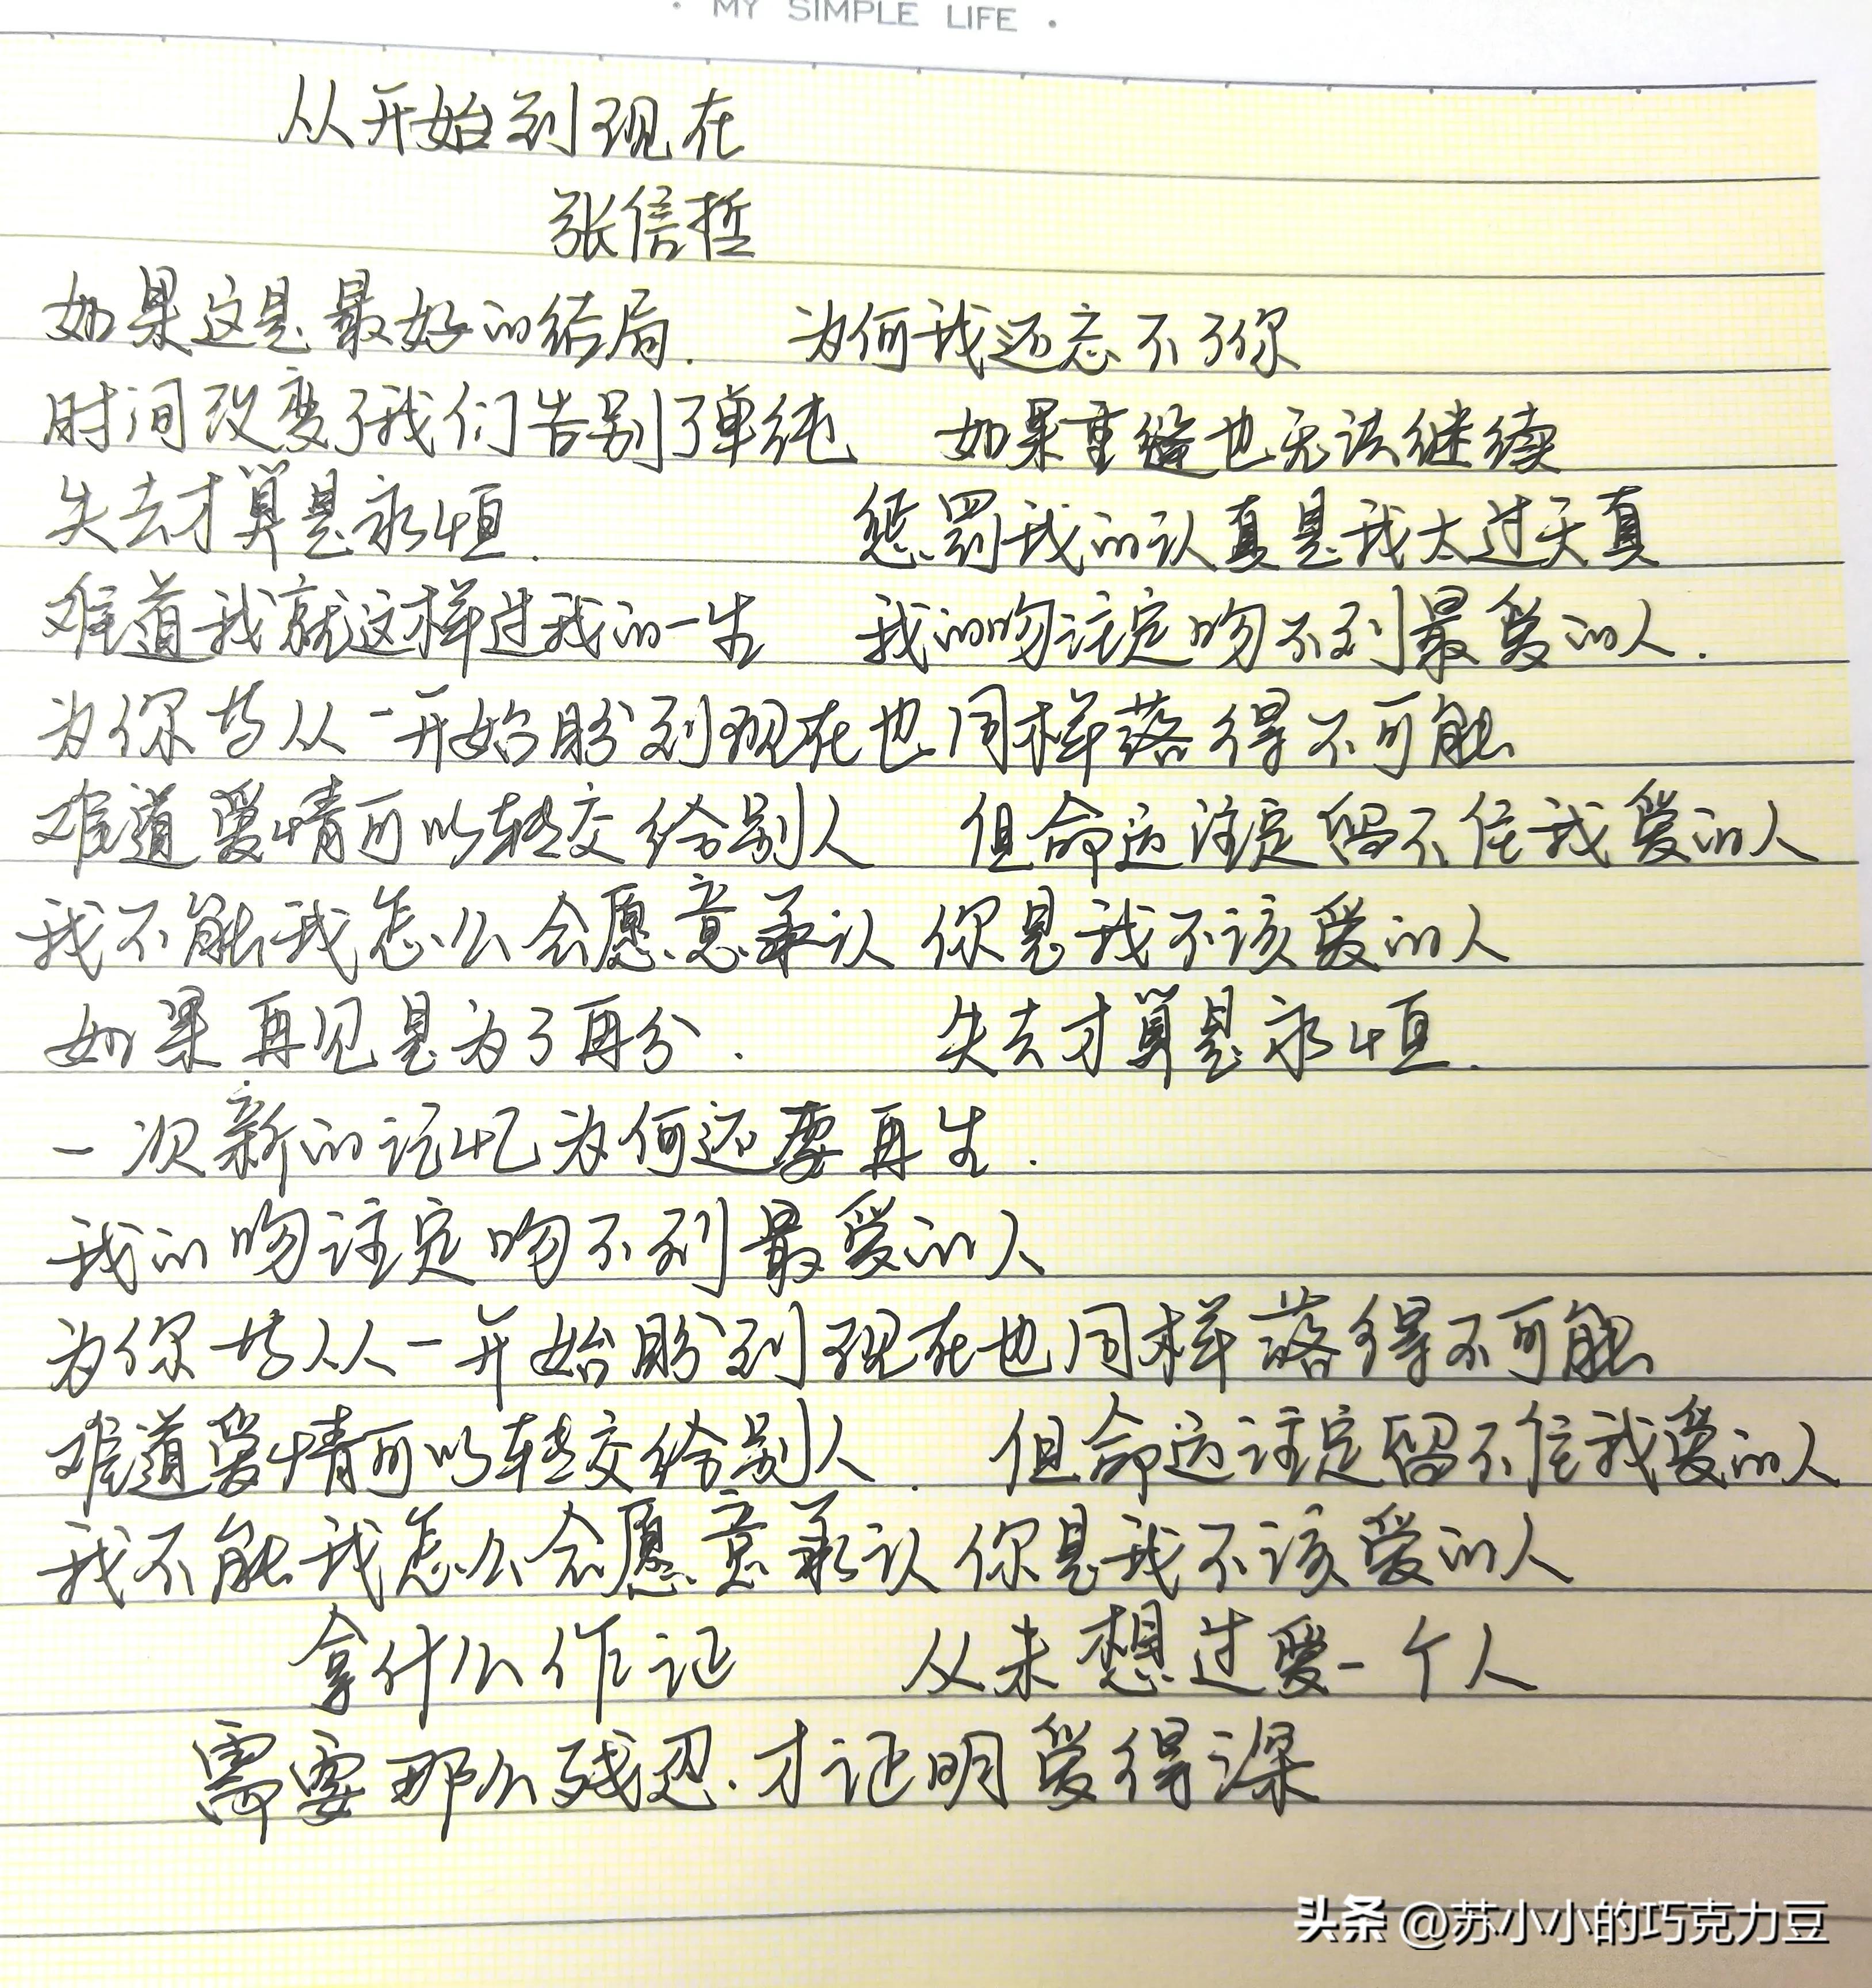 · MY SIMPLE LIFE ·
从开始到现在
张信哲
如果这是最好的结局. 为何我还忘不了你
时间改变了我们告别了单纯 如果重缝也无法继续
失去才算是永恒. 惩罚我的认真是我太过天真
难道我就这样过我的一生 我的吻注定吻不到最爱的人.
为你等从一开始盼到现在也同样落得不可能
难道爱情可以转交给别人 但命运注定留不住我爱的人
我不能我怎么会愿意承认 你是我不该爱的人
如果再见是为了再分. 失去才算是永恒.
一次新的记忆为何还要再生.
我的吻注定吻不到最爱的人
为你等从一开始盼到现在也同样落得不可能
难道爱情可以转交给别人. 但命运注定留不住我爱的人
我不能我怎么会愿意承认 你是我不该爱的人
拿什么作证 从未想过爱一个人
需要那么残忍.才证明爱得深
头条 @苏小小的巧克力豆